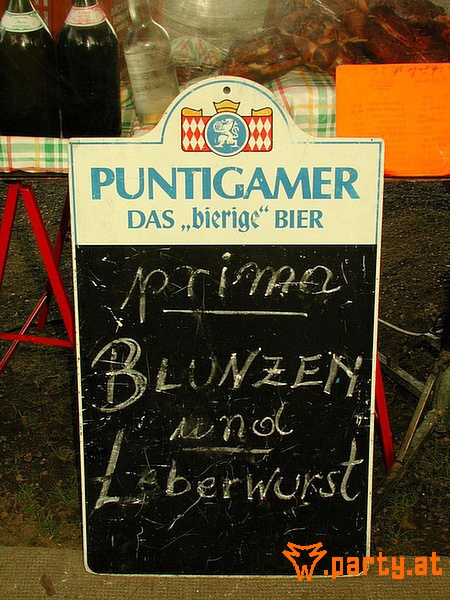 PUNTIGAMER
DAS „bierige“ BIER
prima
BLUNZEN
und
Leberwurst
.party.at